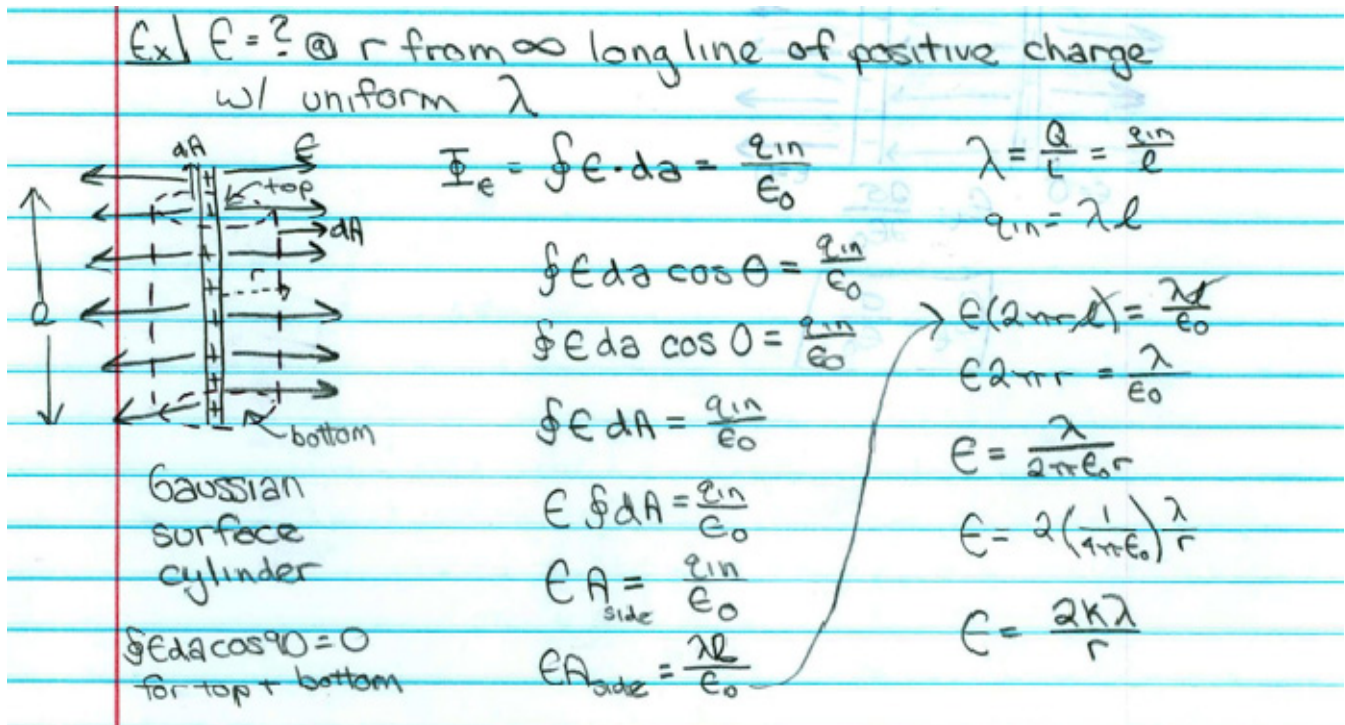 Ex] E = ? @ r from ∞ long line of positive charge
w/ uniform λ
dA
E
top
dA
r
l
+
+
+
+
+
+
+
+
bottom
Gaussian
surface
cylinder
∮Eda cos90 = 0
for top + bottom
Φ_E = ∮E·da = q_in/ε_0
∮Eda cos θ = q_in/ε_0
∮Eda cos 0 = q_in/ε_0
∮E dA = q_in/ε_0
E ∮dA = q_in/ε_0
E A_side = q_in/ε_0
EA_side = λl/ε_0
λ = Q/L = q_in/l
q_in = λl
E(2πrl) = λl/ε_0
E2πr = λ/ε_0
E = λ/2πε_0r
E = 2(1/4πε_0) λ/r
E = 2kλ/r